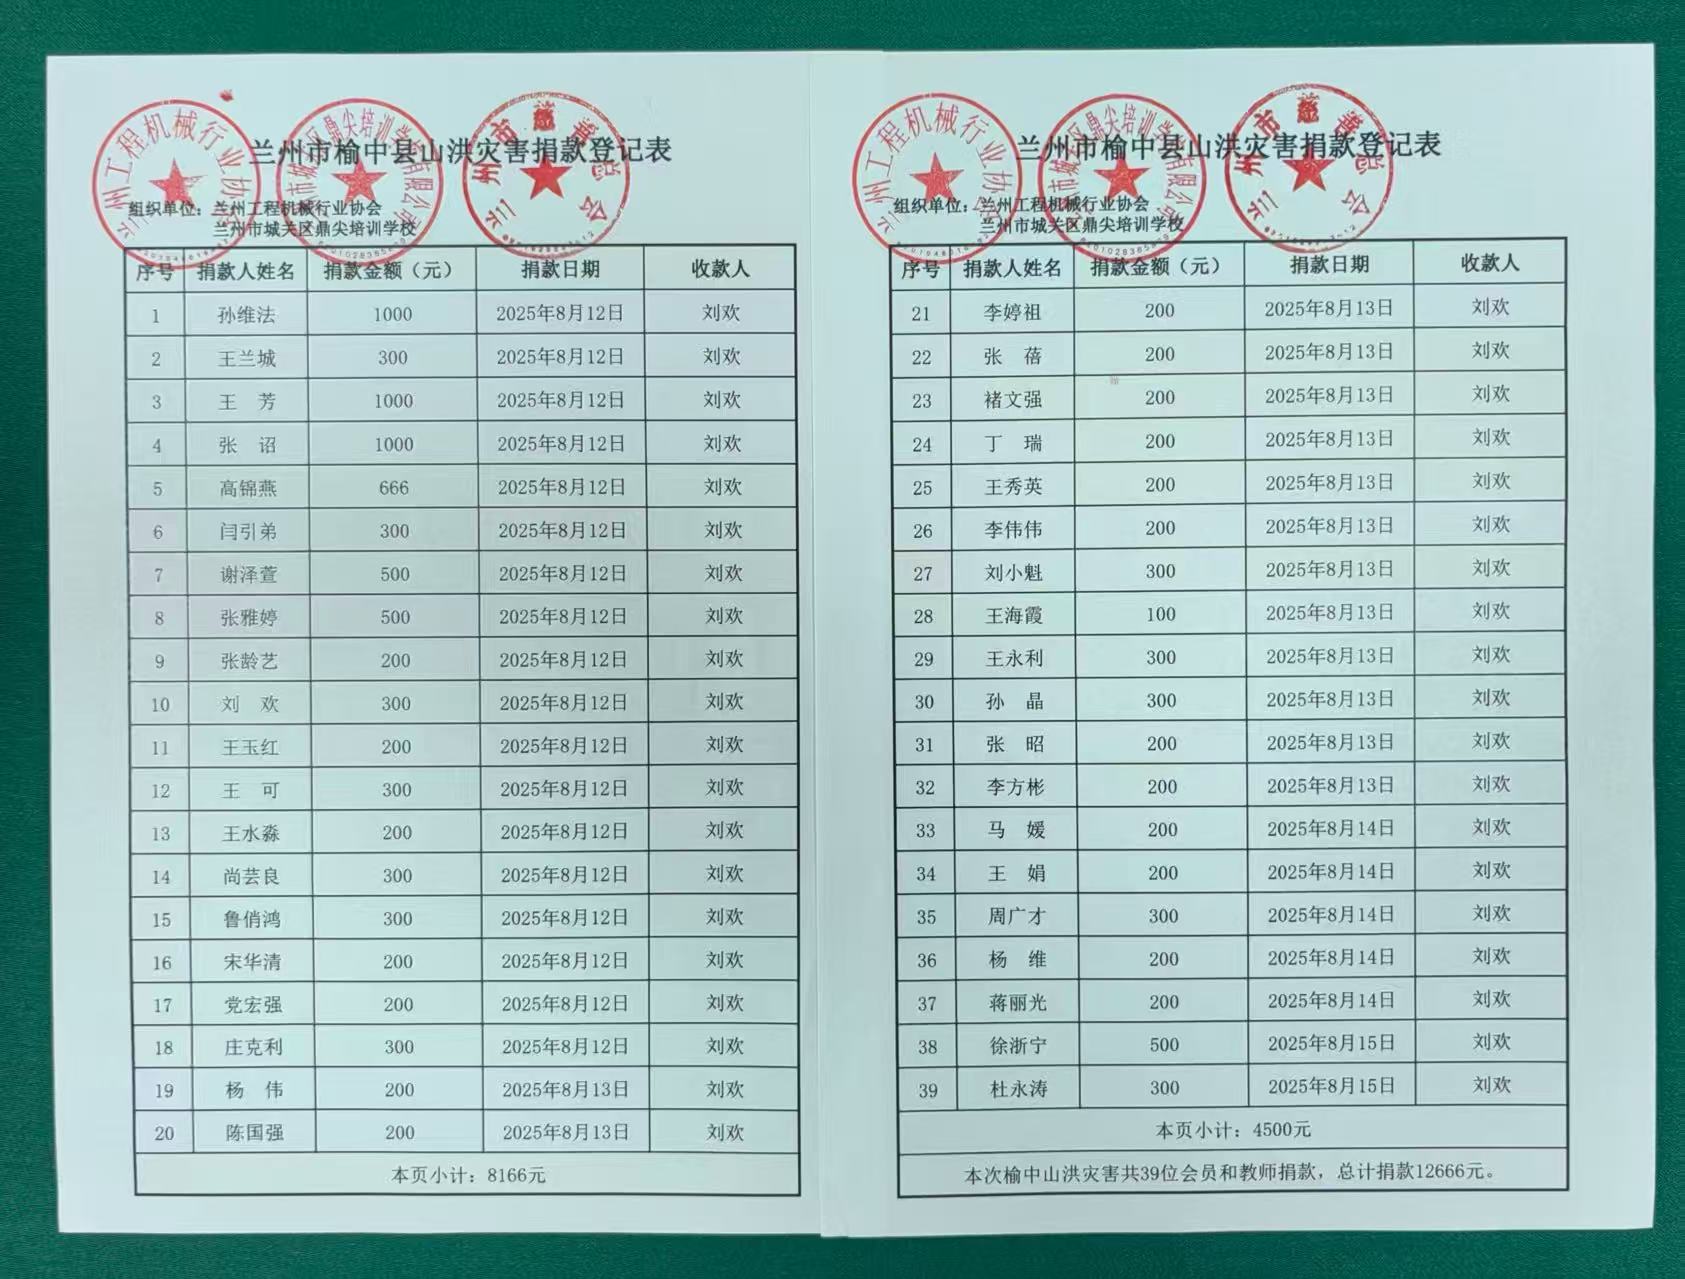 兰州市榆中县山洪灾害捐款登记表
组织单位：兰州工程机械行业协会
兰州市城关区鼎尖培训学校
序号 捐款人姓名 捐款金额（元） 捐款日期 收款人
1 孙维法 1000 2025年8月12日 刘欢
2 王兰城 300 2025年8月12日 刘欢
3 王 芳 1000 2025年8月12日 刘欢
4 张 诏 1000 2025年8月12日 刘欢
5 高锦燕 666 2025年8月12日 刘欢
6 闫引弟 300 2025年8月12日 刘欢
7 谢泽萱 500 2025年8月12日 刘欢
8 张雅婷 500 2025年8月12日 刘欢
9 张龄艺 200 2025年8月12日 刘欢
10 刘 欢 300 2025年8月12日 刘欢
11 王玉红 200 2025年8月12日 刘欢
12 王 可 300 2025年8月12日 刘欢
13 王水淼 200 2025年8月12日 刘欢
14 尚芸良 300 2025年8月12日 刘欢
15 鲁俏鸿 300 2025年8月12日 刘欢
16 宋华清 200 2025年8月12日 刘欢
17 党宏强 200 2025年8月12日 刘欢
18 庄克利 300 2025年8月12日 刘欢
19 杨 伟 200 2025年8月13日 刘欢
20 陈国强 200 2025年8月13日 刘欢
本页小计：8166元
兰州市榆中县山洪灾害捐款登记表
组织单位：兰州工程机械行业协会
兰州市城关区鼎尖培训学校
序号 捐款人姓名 捐款金额（元） 捐款日期 收款人
21 李婷祖 200 2025年8月13日 刘欢
22 张 蓓 200 2025年8月13日 刘欢
23 褚文强 200 2025年8月13日 刘欢
24 丁 瑞 200 2025年8月13日 刘欢
25 王秀英 200 2025年8月13日 刘欢
26 李伟伟 200 2025年8月13日 刘欢
27 刘小魁 300 2025年8月13日 刘欢
28 王海霞 100 2025年8月13日 刘欢
29 王永利 300 2025年8月13日 刘欢
30 孙 晶 300 2025年8月13日 刘欢
31 张 昭 200 2025年8月13日 刘欢
32 李方彬 200 2025年8月13日 刘欢
33 马 媛 200 2025年8月14日 刘欢
34 王 娟 200 2025年8月14日 刘欢
35 周广才 300 2025年8月14日 刘欢
36 杨 维 200 2025年8月14日 刘欢
37 蒋丽光 200 2025年8月14日 刘欢
38 徐浙宁 500 2025年8月15日 刘欢
39 杜永涛 300 2025年8月15日 刘欢
本页小计：4500元
本次榆中山洪灾害共39位会员和教师捐款，总计捐款12666元。